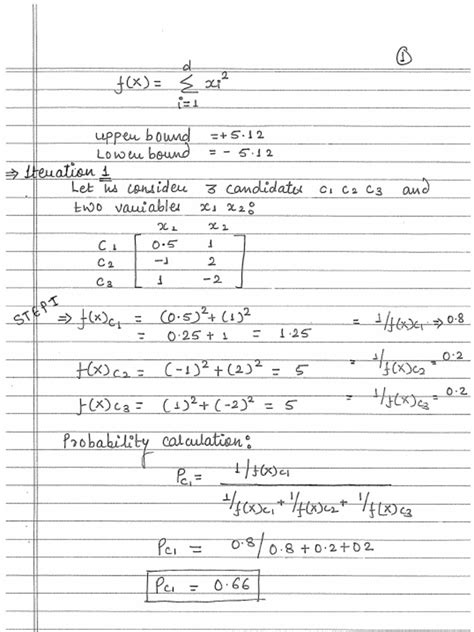 ①
f(x) = d Σ i=1 xi²
upper bound = +5.12
Lower bound = - 5.12
⇒ Iteration 1
Let us consider 3 candidates c1 c2 c3 and
two variables x1 x2:
x1 x2
C1 0.5 1
C2 -1 2
C3 1 -2
STEP I ⇒ f(x)c1 = (0.5)² + (1)² = 1/f(x)c1 ⇒ 0.8
= 0.25 + 1 = 1.25
f(x)c2 = (-1)² + (2)² = 5 = 1/f(x)c2 = 0.2
f(x)c3 = (1)² + (-2)² = 5 = 1/f(x)c3 = 0.2
Probability calculation:
Pc1 = 1/f(x)c1
1/f(x)c1 + 1/f(x)c2 + 1/f(x)c3
Pc1 = 0.8/0.8 + 0.2 + 02
Pc1 = 0.66